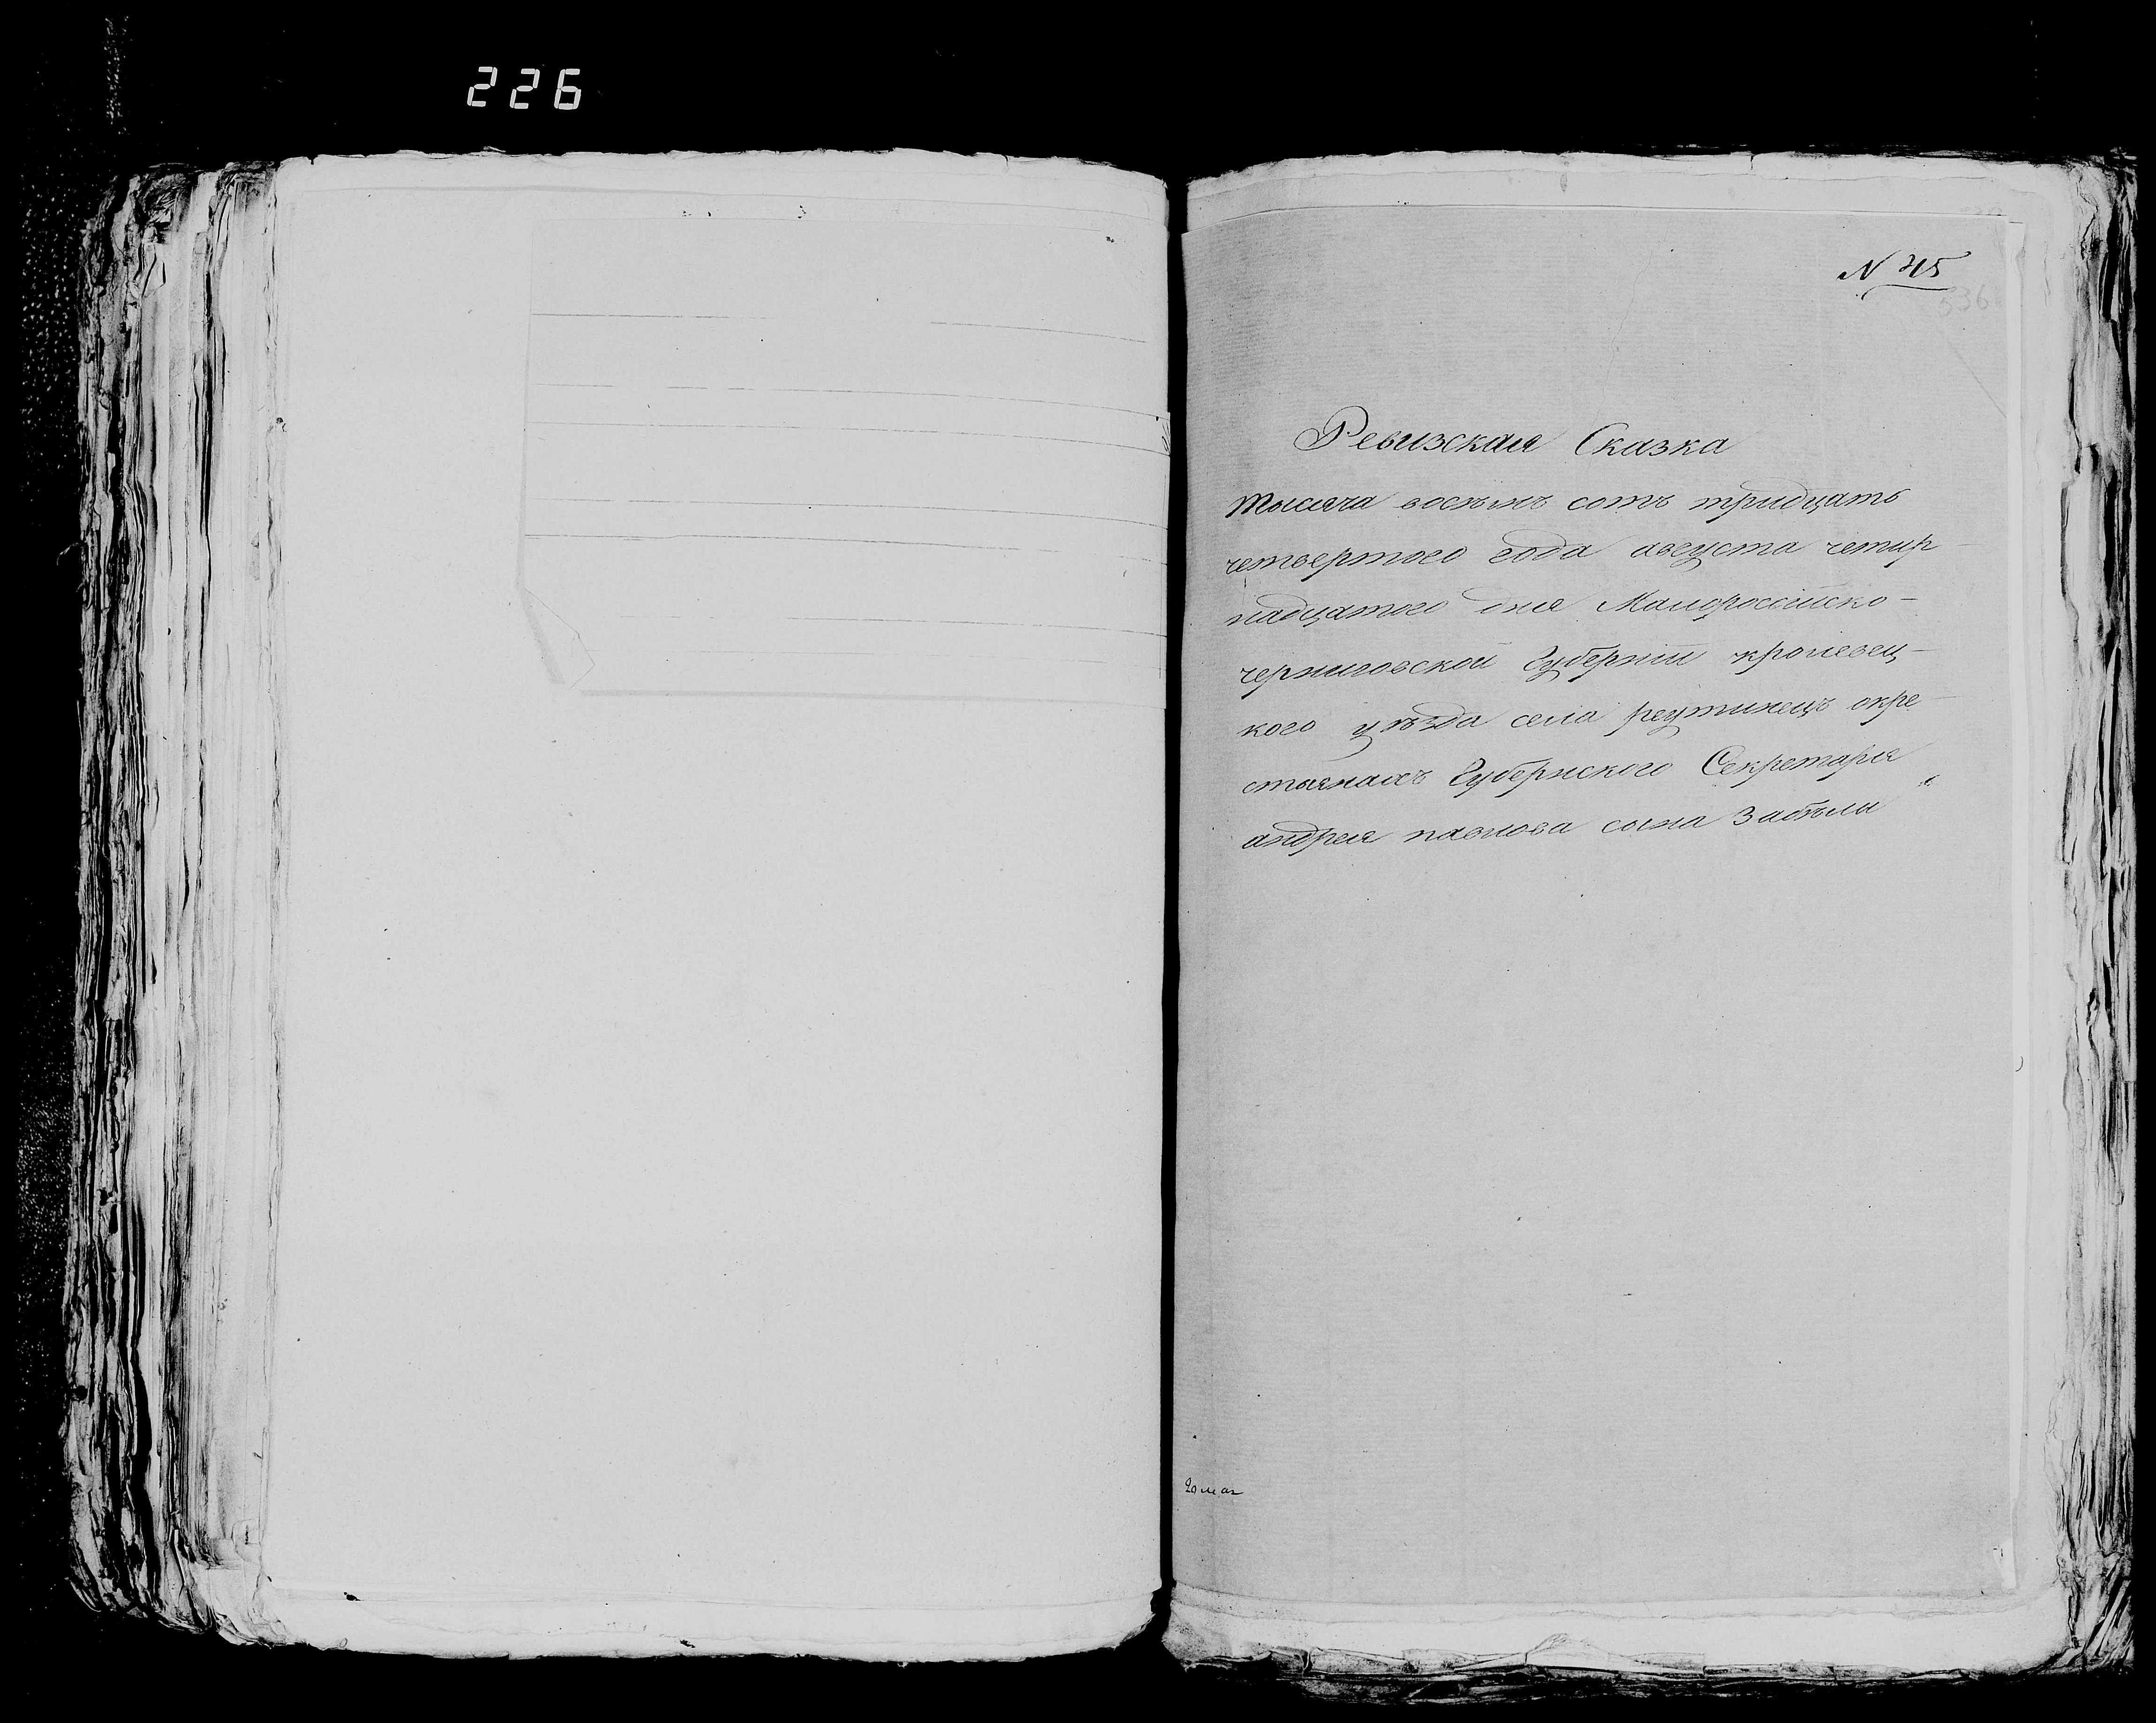 226
N 45
536
Ревизская Сказка
тысяча восѣмъ сотъ тридцать
четвертого года августа четир
надцатого дня Малороссійско-
черниговской Губерніи кролевец-
кого уѣзда села реутинецъ окре
стьянахъ Губернского Секретаря
андрея павлова сына Забѣлы